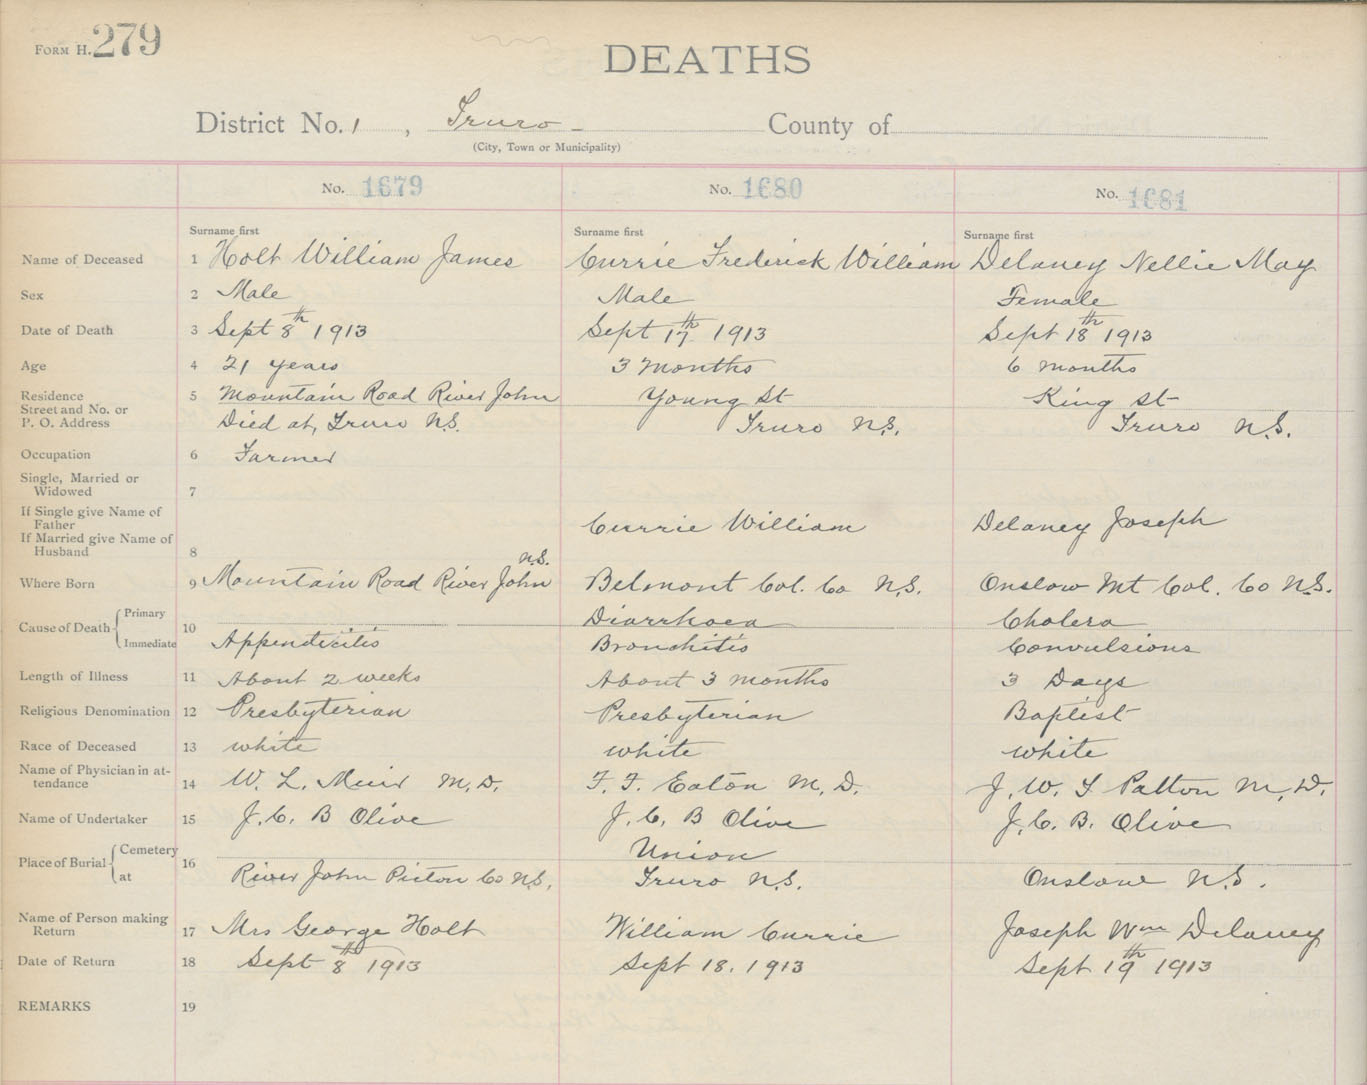 FORM H. 279
DEATHS
District No. 1, Truro - County of
(City, Town or Municipality)
No. 1679 No. 1680 No. 1681
Surname first Surname first Surname first
Name of Deceased 1 Holt William James Currie Frederick William Delaney Nellie May
Sex 2 Male Male Female
Date of Death 3 Sept 8th 1913 Sept 17th 1913 Sept 18th 1913
Age 4 21 years 3 months 6 months
Residence 5 Mountain Road River John Young St King St
Street and No. or
P. O. Address Died at, Truro N.S. Truro N.S. Truro N.S.
Occupation 6 Farmer
Single, Married or
Widowed 7
If Single give Name of
Father Currie William Delaney Joseph
If Married give Name of
Husband 8
Where Born 9 Mountain Road River John N.S. Belmont Col. Co N.S. Onslow Mt Col. Co N.S.
Cause of Death { Primary 10 Diarrhoea Cholera
Immediate Appendicitis Bronchitis Convulsions
Length of Illness 11 About 2 weeks About 3 months 3 Days
Religious Denomination 12 Presbyterian Presbyterian Baptist
Race of Deceased 13 white white white
Name of Physician in at-
tendance 14 W. L. Muir M.D. F. F. Eaton M.D. J. W. T Patton M.D.
Name of Undertaker 15 J. C. B Olive J. C. B Olive J. C. B. Olive
Place of Burial { Cemetery 16 Union
at River John Pictou Co N.S. Truro N.S. Onslow N.S.
Name of Person making
Return 17 Mrs George Holt William Currie Joseph Wm Delaney
Date of Return 18 Sept 8th 1913 Sept 18. 1913 Sept 19th 1913
REMARKS 19